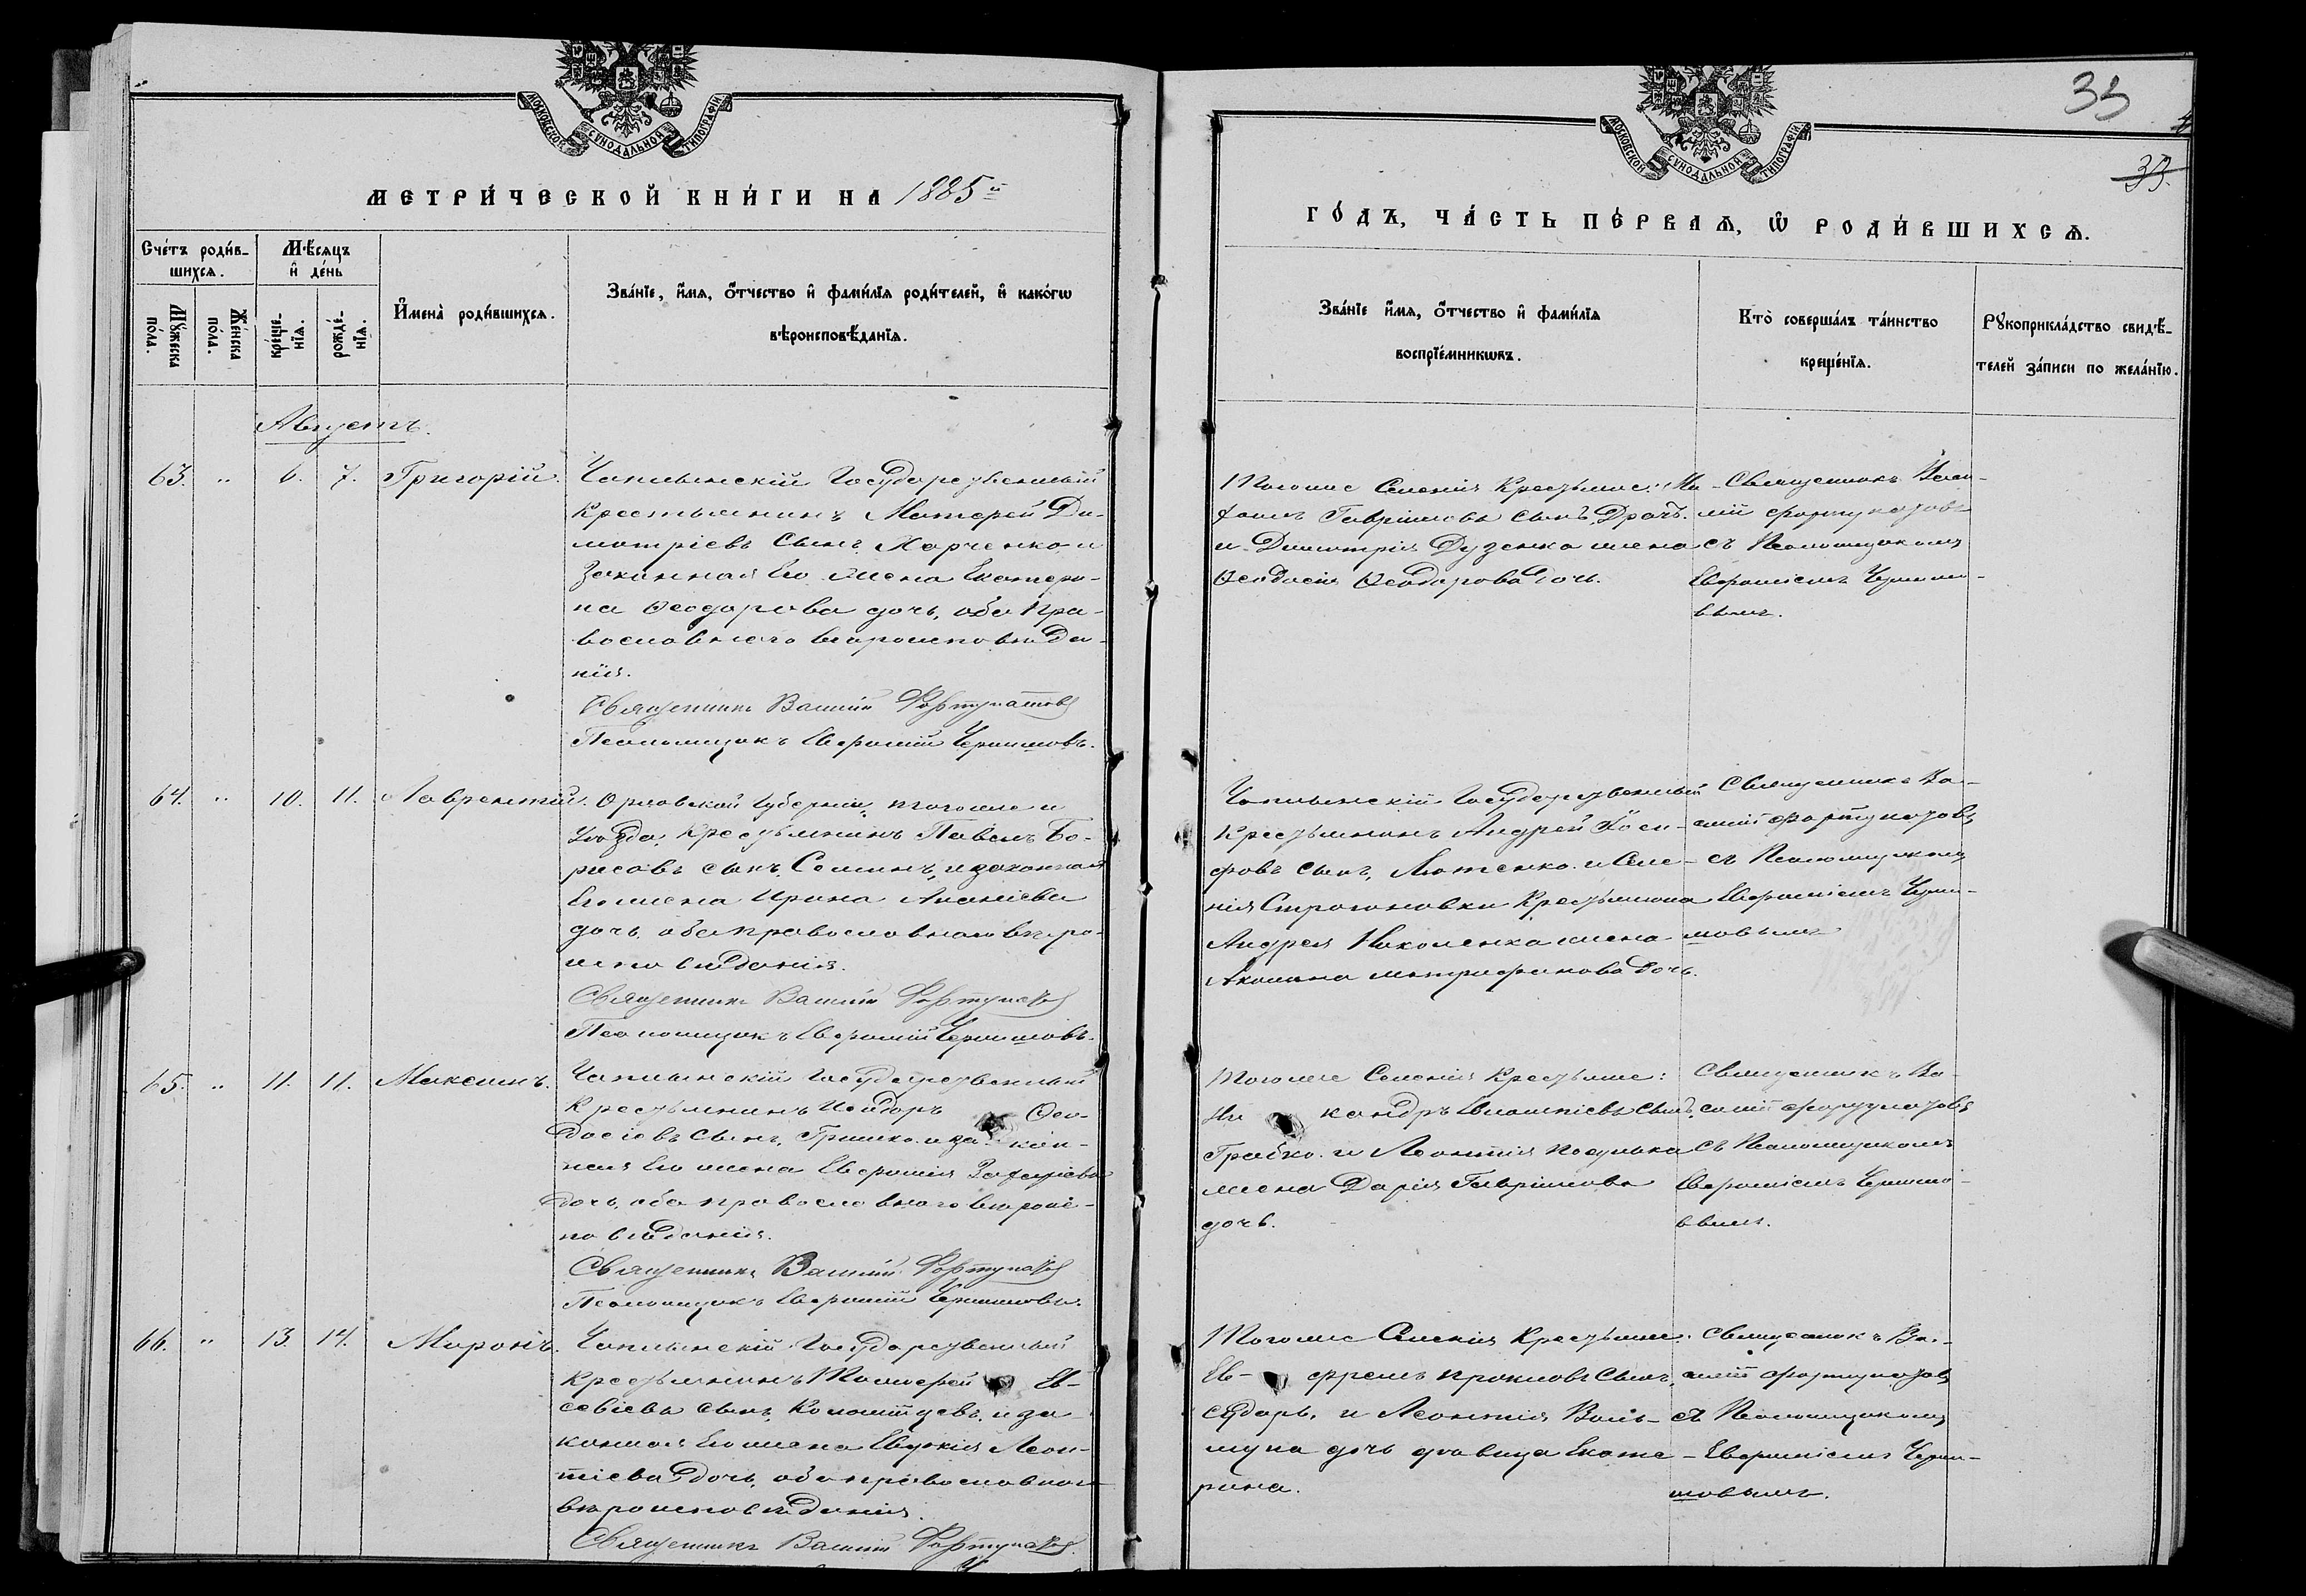 МОСКОВСКОЙ СѴНОДАЛЬНОЙ ТИПОГРАФІИ
МЕТРИ́ЧЕСКОЙ КНИ́ГИ НА 1885й
Сче́тъ роди́в-
шихсѧ.
Мꙋ́жеска
по́ла.
Же́нска
по́ла.
Мѣ́сѧцъ
и҆ де́нь
креще́-
нїѧ.
рожде́-
нїѧ.
И҆мена̀ роди́вшихсѧ.
Зва́нїе, и҆́мѧ, ѻ҆́тчество и҆ фами́лїѧ роди́телей, и҆ како́гѡ
вѣроисповѣ́данїѧ.
Августъ.
63. " 6. 7. Григорій.
Чаплынскій Государственный
Крестьянинъ Матфей Ди-
митріевъ Сынъ Харченко и
Законная Его жена Екатери-
на Ѳеодорова дочь, оба Пра-
вославнаго вѣроисповѣда-
нія.
Священникъ Василій Фортунатовъ
Псаломщикъ Евфимій Чернышовъ.
64. " 10. 11. Лаврентій.
Орловской Губерніи, тогоже и
Уѣзда, Крестьянинъ Павелъ Бо-
рисовъ сынъ, Семинъ, и законная
Его жена Ирина Ананіева
дочь, оба православнаго вѣро-
исповѣданія.
Священникъ Василій Фортунатовъ
Псаломщикъ Евфимій Чернышовъ.
65. " 11. 11. Максимъ.
Чаплынскій Государственный
Крестьянинъ Исидоръ Ѳео-
досіевъ Сынъ, Гришко и за- кон-
ная Его жена Евфимія Захаріева
дочь, оба православнаго вѣроис-
повѣданія.
Священникъ Василій Фортунатовъ
Псаломщикъ Евфимій Чернышовъ.
66. " 13. 14. Миронъ.
Чаплынскій Государственный
Крестьянинъ Тимофей Ев-
севіевъ сынъ, Коломійцевъ, и за
конная Его жена Евдокія Леон-
тіева дочь, оба православнаго
вѣроисповѣданія.
Священникъ Василій Фортунатовъ
МОСКОВСКОЙ СѴНОДАЛЬНОЙ ТИПОГРАФІИ
33
33.
ГО́ДЪ, ЧА́СТЬ ПЕ́РВАѦ, Ѡ҆ РОДИ́ВШИХСѦ.
Зва́нїе и҆́мѧ, ѻ҆́тчество и҆ фами́лїѧ
воспрїе́мникѡвъ.
Кто̀ соверша́лъ та́инство
креще́нїѧ.
Рꙋкоприкла́дство свидѣ́-
телей за́писи по жела́нїю.
Тогоже Селенія Крестьяне: Ми-
хаилъ Гавріиловъ сынъ, Драчъ.
и Димитрія Дузенка жена
Ѳеодосія Ѳеодорова дочь.
Священникъ Васи-
лій Фортунатовъ
съ Псаломщикомъ
Евфиміемъ Чернышо-
вымъ.
Чаплынскій Государственный
Крестьянинъ Андрей Іоси-
фовъ сынъ, и Селе-
нія Строгановки Крестьянина
Андрея Николенка жена
Акилина Митрофанова дочь.
Священникъ Ва-
силій Фортунатовъ
съ Псаломщикомъ
Евфиміемъ Черны-
шовымъ
Тогоже Селенія Крестьяне:
Ни кандръ сынъ,
Грабко. и Леонтія
жена Дарія Гавріилова
дочь.
Священникъ Ва-
силій Фортунатовъ
съ Псаломщикомъ
Евфиміемъ Чернышо-
вымъ.
Тогоже Селенія Крестьяне:
Ев- фремъ Проковъ сынъ,
Сударь, и Леонтія
дочь дѣвица Екате-
рина.
Священникъ Ва-
силій Фортунатовъ
съ Псаломщикомъ
Евфиміемъ Черны-
шовымъ.